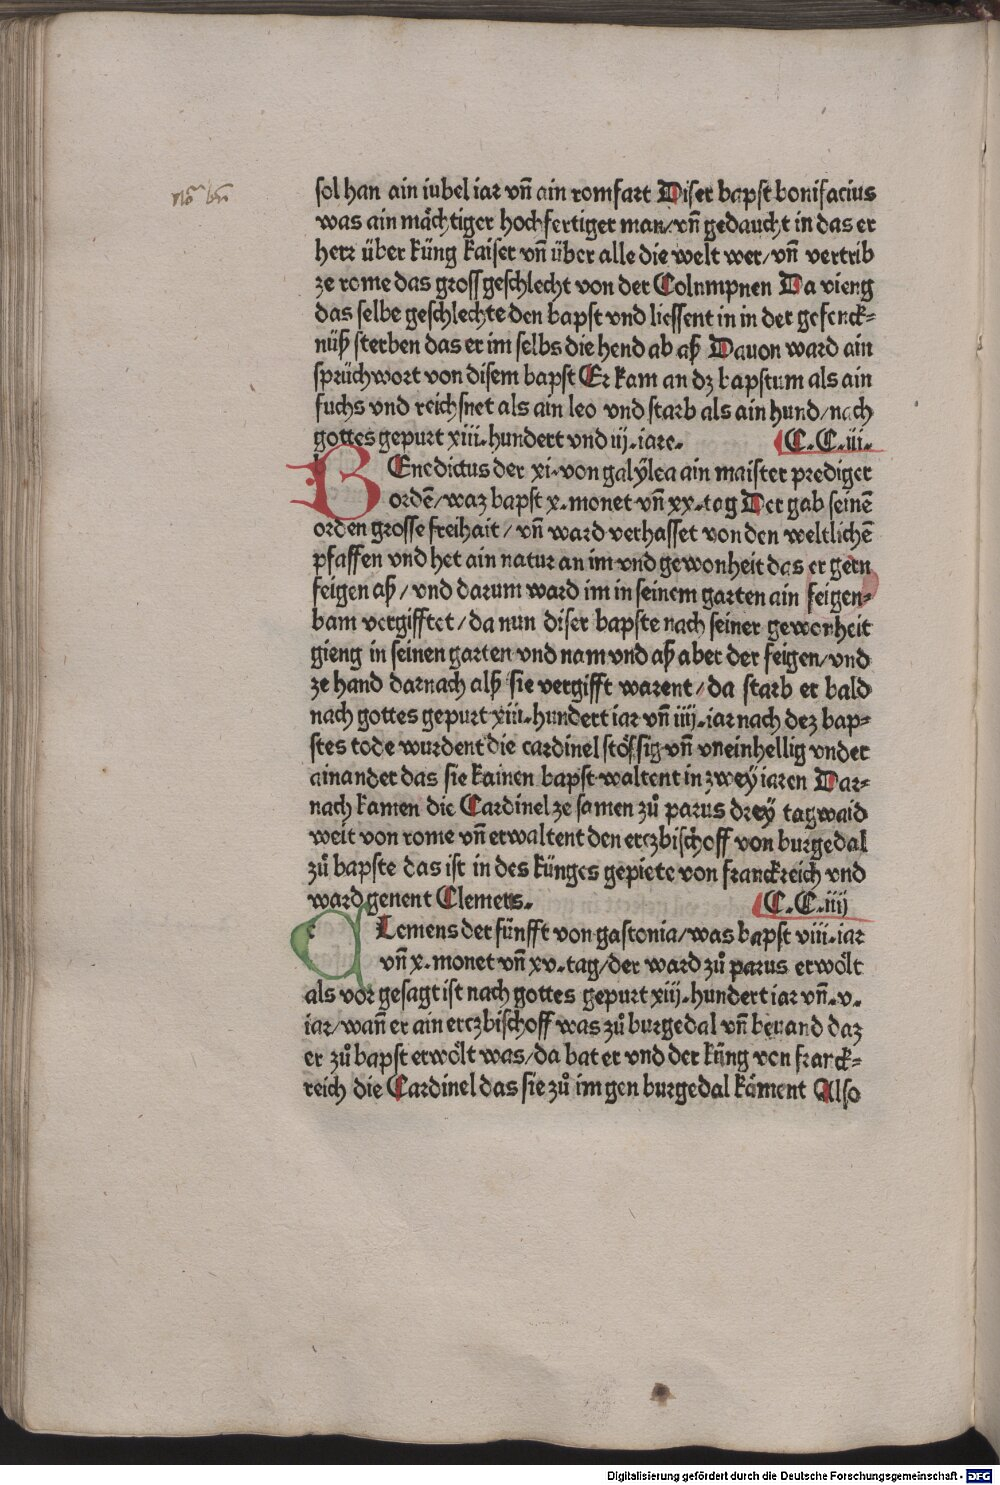 sol han ain iubel iar vn̄ ain romfart Diser bapst bonifacius
was ain mächtiger hochfertiger man/vn̄ gedaucht in das er
herr über küng kaiser vn̄ über alle die welt wer/vn̄ vertrib
ze rome das gross geschlecht von der Columpnen Da vieng
das selbe geschlechte den bapst vnd liessent in in der gefenck-
nüß sterben das er im selbs die hend ab aß Dauon ward ain
sprüchwort von disem bapst Er kam an dz bapstum als ain
fuchs vnd reichsnet als ain leo vnd starb als ain hund/nach
gottes gepurt xiii.hundert vnd iij.iare. C.C.iii.
BEnedictus der xi.von galÿlea ain maister prediger
ordē/waz bapst x.monet vn̄ xx.tag Der gab seinē
orden grosse freihait/vn̄ ward verhasset von den weltlichē
pfaffen vnd het ain natur an im vnd gewonheit das er gern
feigen aß/vnd darum ward im in seinem garten ain feigen-
bam vergifftet/da nun diser bapste nach seiner gewonheit
gieng in seinen garten vnd nam vnd aß aber der feigen/vnd
ze hand darnach alß sie vergifft warent/da starb er bald
nach gottes gepurt xiii.hundert iar vn̄ iiij.iar nach dez bap-
stes tode wurdent die cardinel stössig vn̄ vneinhellig vnder
ainander das sie kainen bapst waltent in zweÿ iaren Dar-
nach kamen die Cardinel ze samen zů parus dreÿ tagwaid
weit von rome vn̄ erwaltent den erczbischoff von burgedal
zů bapste das ist in des künges gepiete von franckreich vnd
ward genent Clemens. C.C.iiij
CLemens der fünfft von gastonia/was bapst viii.iar
vn̄ x.monet vn̄ xv.tag/der ward zů parus erwölt
als vor gesagt ist nach gottes gepurt xiij.hundert iar vn̄.v.
iar/wan̄ er ain erczbischoff was zů burgedal vn̄ beuand daz
er zů bapst erwölt was/da bat er vnd der küng von franck-
reich die Cardinel das sie zů im gen burgedal käment Also
Digitalisierung gefördert durch die Deutsche Forschungsgemeinschaft - DFG